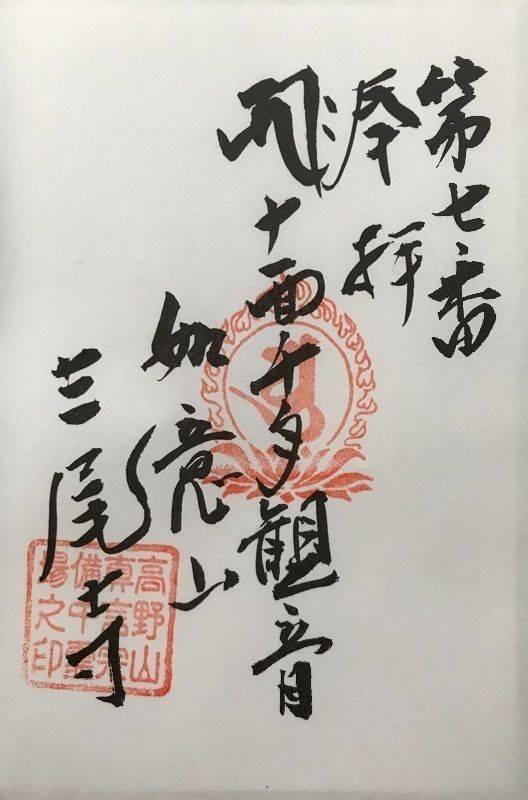 第七番
奉拝
十一面千手觀音
如意山
三尾寺
高野山
真言宗
備中霊
場之印